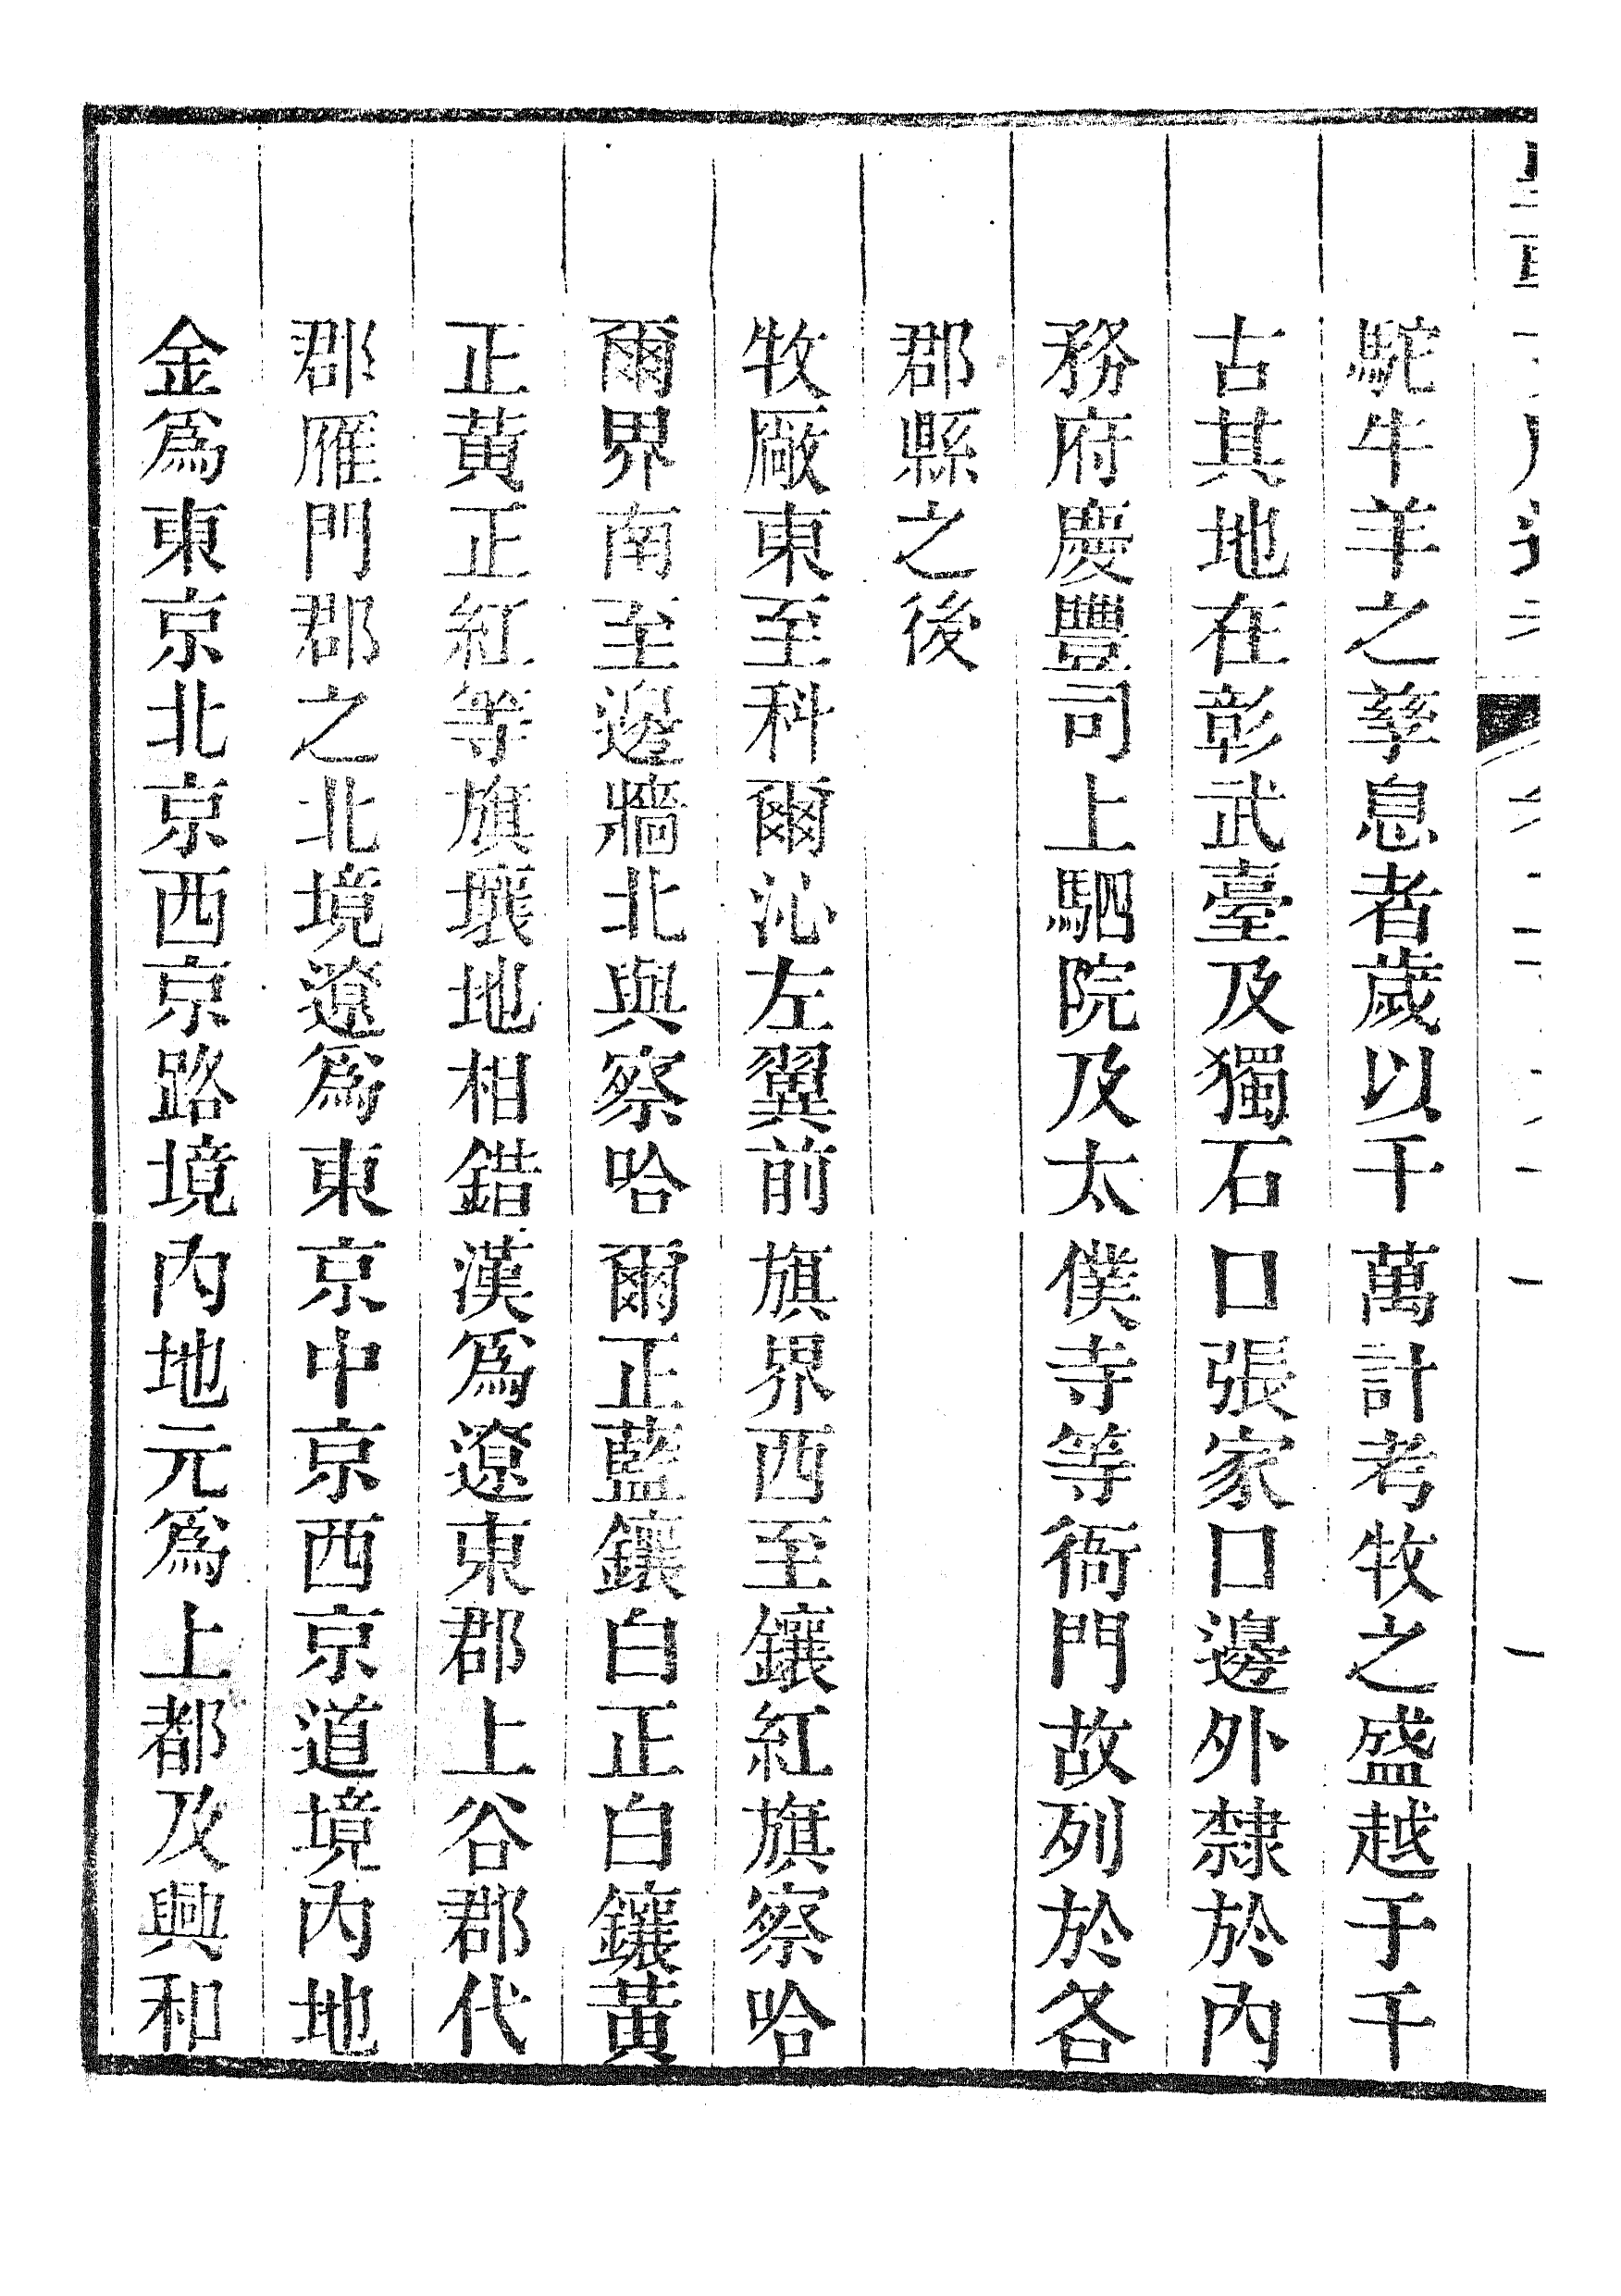 駝牛羊之孳息者歲以千萬計考牧之盛越于千
古其地在彰武臺及獨石口張家口邊外隸於內
務府慶豐司上駟院及太僕寺等衙門故列於各
郡縣之後
牧厰東至科爾沁左翼前旗界西至鑲紅旗察哈
爾界南至邊牆北與察哈爾正藍鑲白正白鑲黃
正黃正紅等旗壤地相錯漢為遼東郡上谷郡代
郡雁門郡之北境遼為東京中京西京道境內地
金為東京北京西京路境內地元為上都及興和